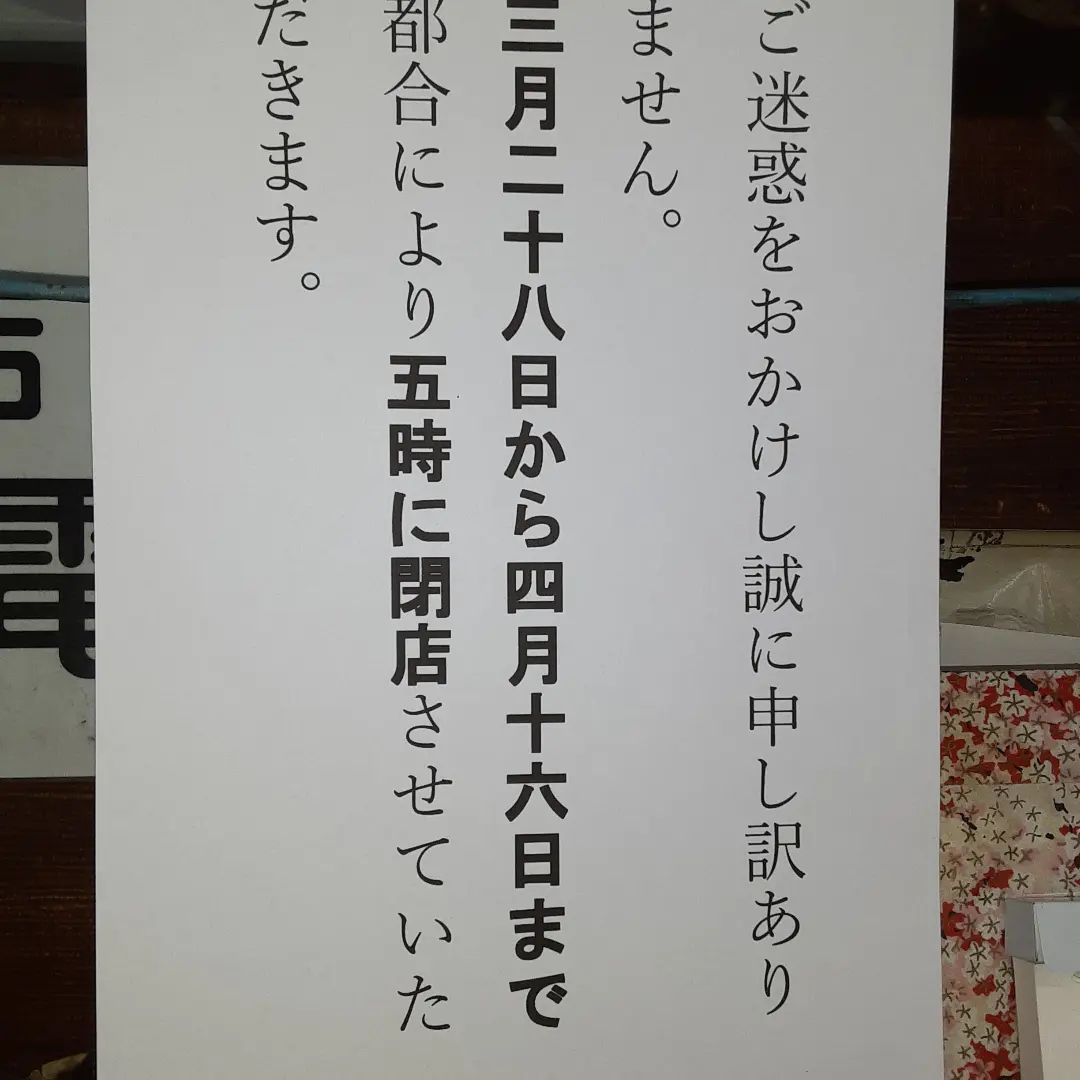 ご迷惑をおかけし誠に申し訳あり
ません。
三月二十八日から四月十六日まで
都合により五時に閉店させていた
だきます。
電